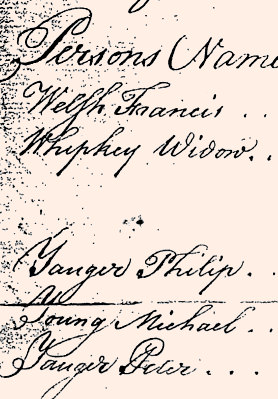 Persons Name
Welsh Francis . .
Whipkey Widow . .
Yanger Philip . .
Young Michael . .
Yanger Peter . . .